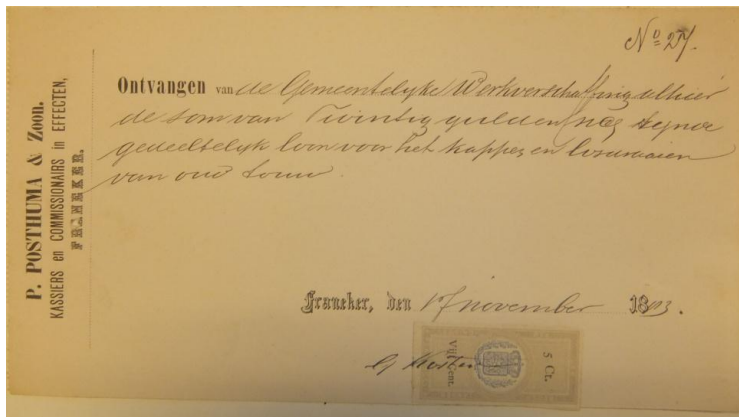 P. POSTHUMA & Zoon.
KASSIERS en COMMISSIONAIRS in EFFECTEN,
FRANEKER.
No 27.
Ontvangen van de Gemeentelyke Werkverschaffing alhier
de som van Twintig gulden zynde
gedeeltelyk loon voor het kappen en losdraaien
van oud touw.
Franeker, den 17 november 1893.
5 Ct.
Vijf Cent.